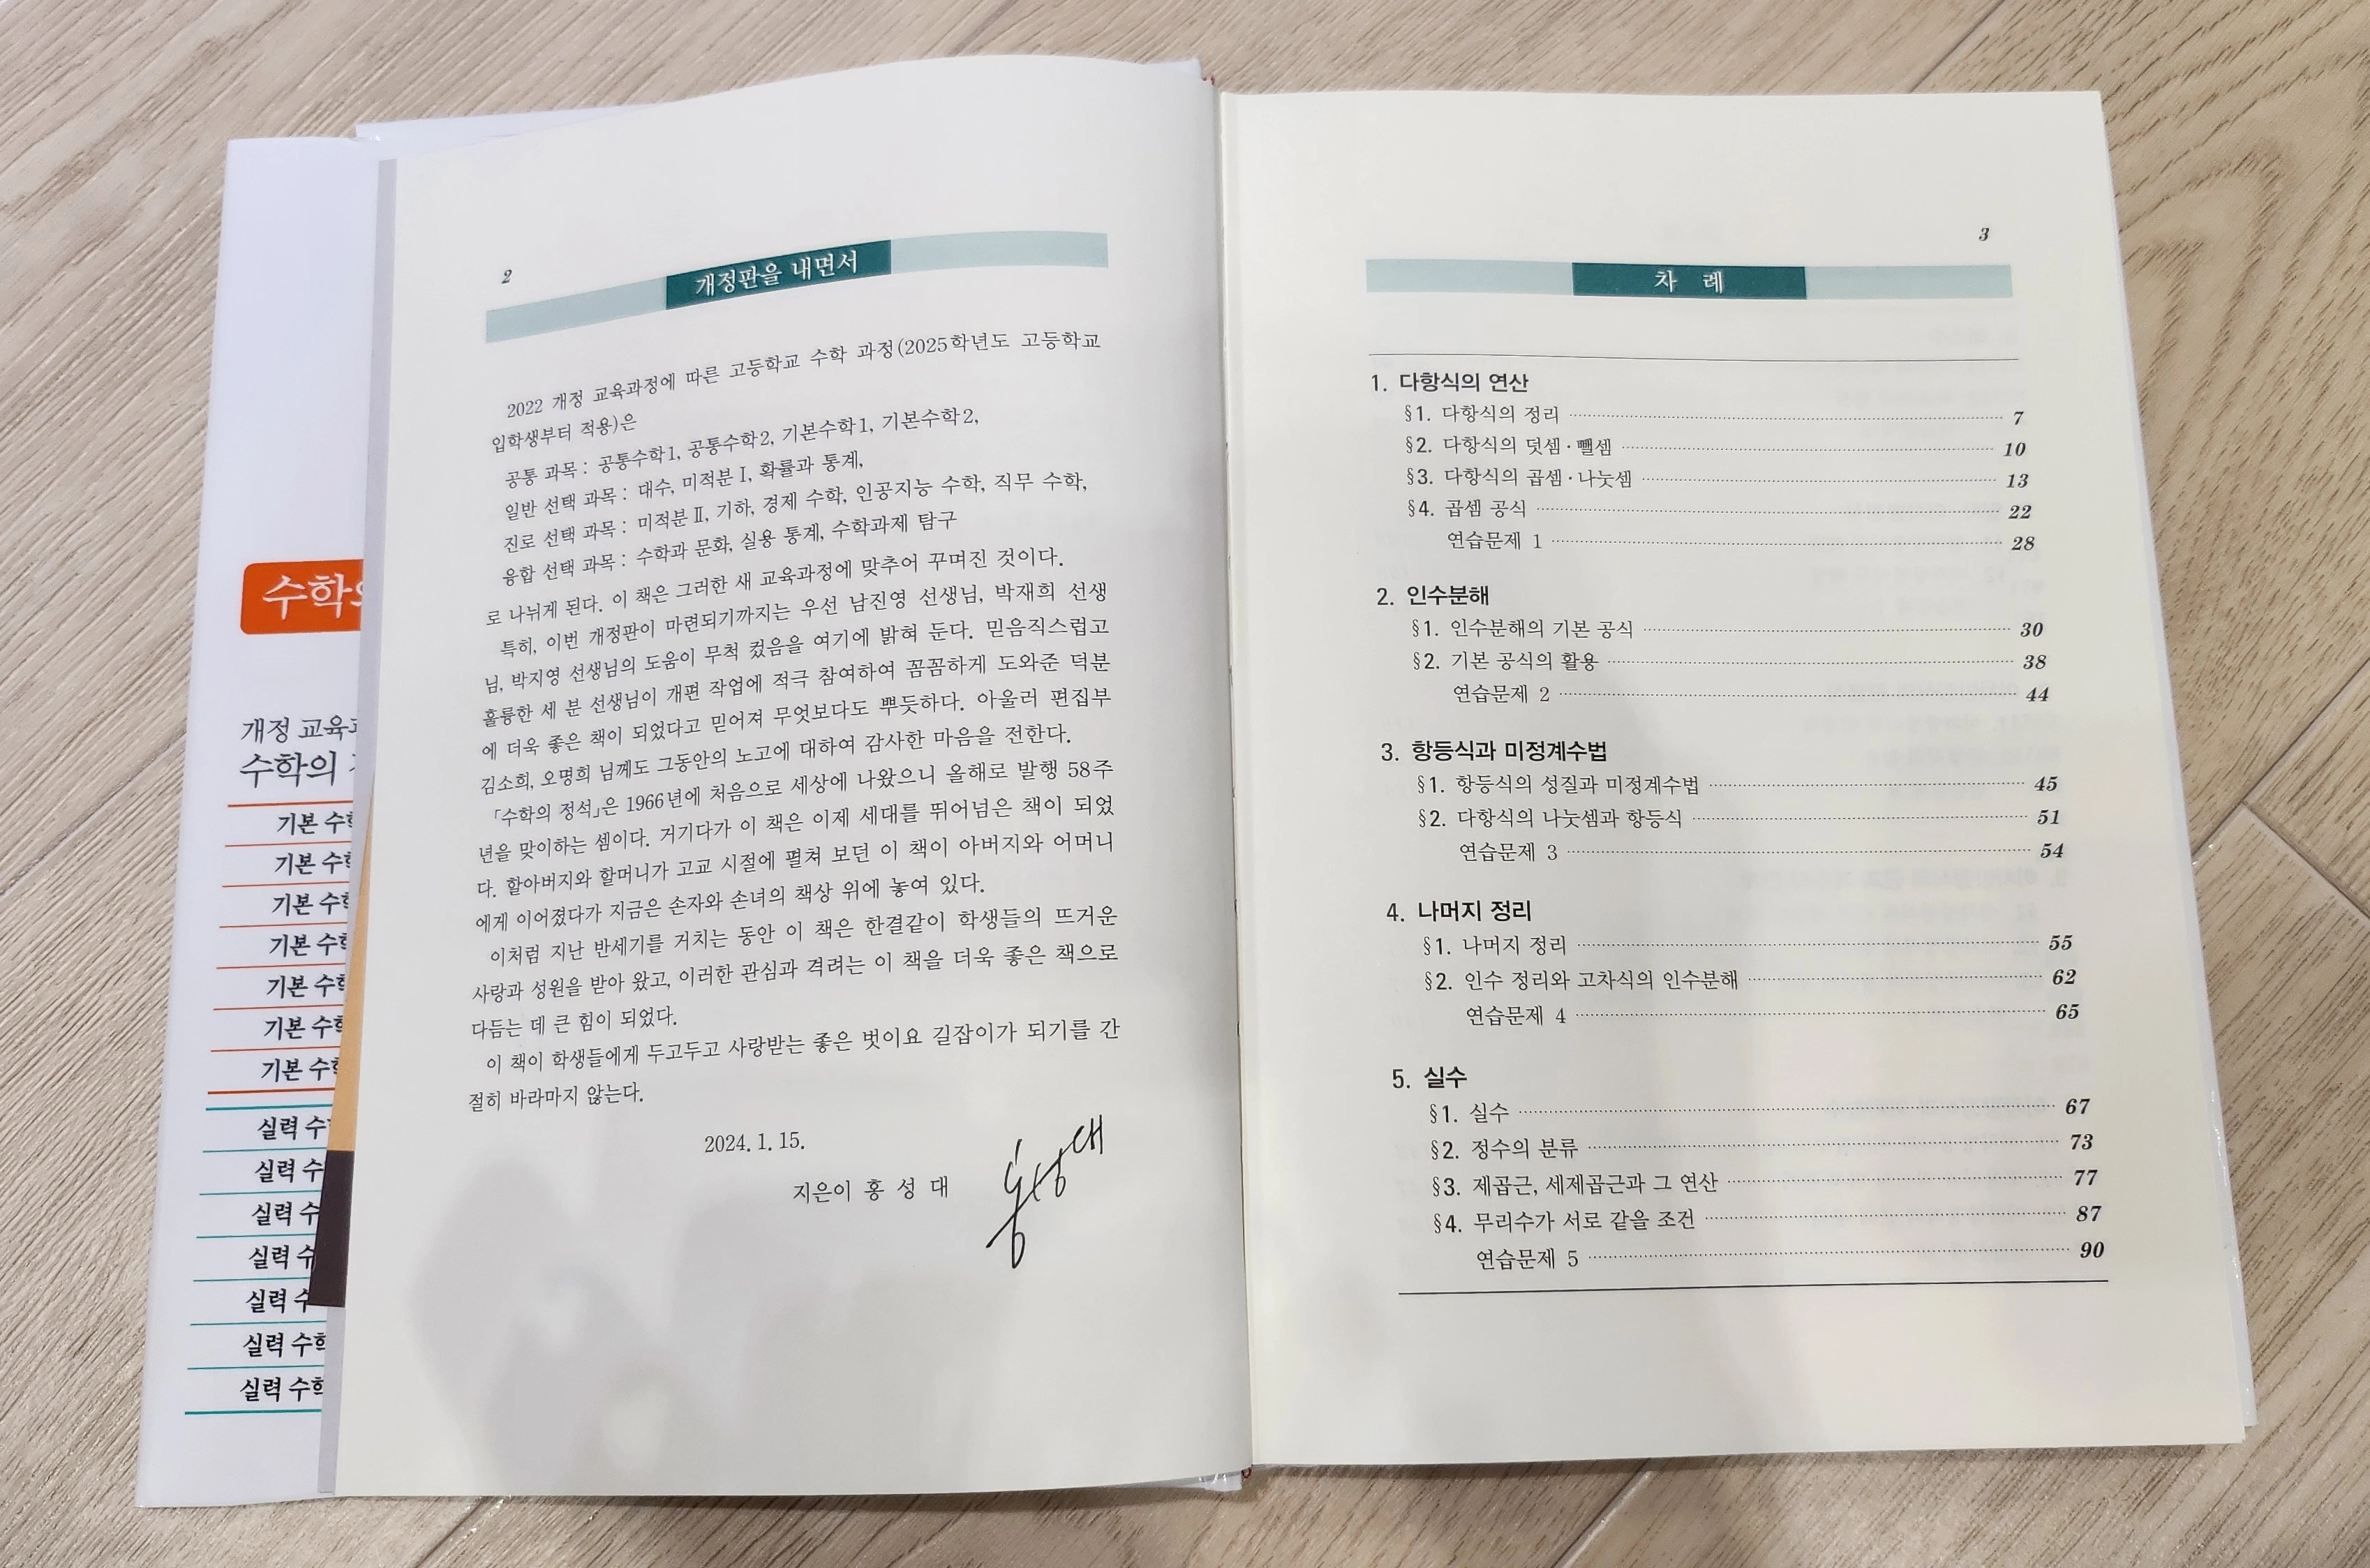 수학의
개정 교육과
수학의
기본 수학
기본 수학
기본 수학
기본 수학
기본 수학
기본 수학
기본 수학
실력 수학
실력 수
실력 수
실력 수
실력 수
실력 수학
실력 수학
2
개정판을 내면서
2022 개정 교육과정에 따른 고등학교 수학 과정(2025학년도 고등학교
입학생부터 적용)은
공통 과목 : 공통수학1, 공통수학2, 기본수학1, 기본수학2,
일반 선택 과목 : 대수, 미적분Ⅰ, 확률과 통계,
진로 선택 과목 : 미적분Ⅱ, 기하, 경제 수학, 인공지능 수학, 직무 수학,
융합 선택 과목 : 수학과 문화, 실용 통계, 수학과제 탐구
로 나뉘게 된다. 이 책은 그러한 새 교육과정에 맞추어 꾸며진 것이다.
특히, 이번 개정판이 마련되기까지는 우선 남진영 선생님, 박재희 선생
님, 박지영 선생님의 도움이 무척 컸음을 여기에 밝혀 둔다. 믿음직스럽고
훌륭한 세 분 선생님이 개편 작업에 적극 참여하여 꼼꼼하게 도와준 덕분
에 더욱 좋은 책이 되었다고 믿어져 무엇보다도 뿌듯하다. 아울러 편집부
김소희, 오명희 님께도 그동안의 노고에 대하여 감사한 마음을 전한다.
「수학의 정석」은 1966년에 처음으로 세상에 나왔으니 올해로 발행 58주
년을 맞이하는 셈이다. 거기다가 이 책은 이제 세대를 뛰어넘은 책이 되었
다. 할아버지와 할머니가 고교 시절에 펼쳐 보던 이 책이 아버지와 어머니
에게 이어졌다가 지금은 손자와 손녀의 책상 위에 놓여 있다.
이처럼 지난 반세기를 거치는 동안 이 책은 한결같이 학생들의 뜨거운
사랑과 성원을 받아 왔고, 이러한 관심과 격려는 이 책을 더욱 좋은 책으로
다듬는 데 큰 힘이 되었다.
이 책이 학생들에게 두고두고 사랑받는 좋은 벗이요 길잡이가 되기를 간
절히 바라마지 않는다.
2024. 1. 15.
지은이 홍 성 대
홍성대
3
차 례
1. 다항식의 연산
§1. 다항식의 정리 7
§2. 다항식의 덧셈·뺄셈 10
§3. 다항식의 곱셈·나눗셈 13
§4. 곱셈 공식 22
연습문제 1 28
2. 인수분해
§1. 인수분해의 기본 공식 30
§2. 기본 공식의 활용 38
연습문제 2 44
3. 항등식과 미정계수법
§1. 항등식의 성질과 미정계수법 45
§2. 다항식의 나눗셈과 항등식 51
연습문제 3 54
4. 나머지 정리
§1. 나머지 정리 55
§2. 인수 정리와 고차식의 인수분해 62
연습문제 4 65
5. 실수
§1. 실수 67
§2. 정수의 분류 73
§3. 제곱근, 세제곱근과 그 연산 77
§4. 무리수가 서로 같을 조건 87
연습문제 5 90